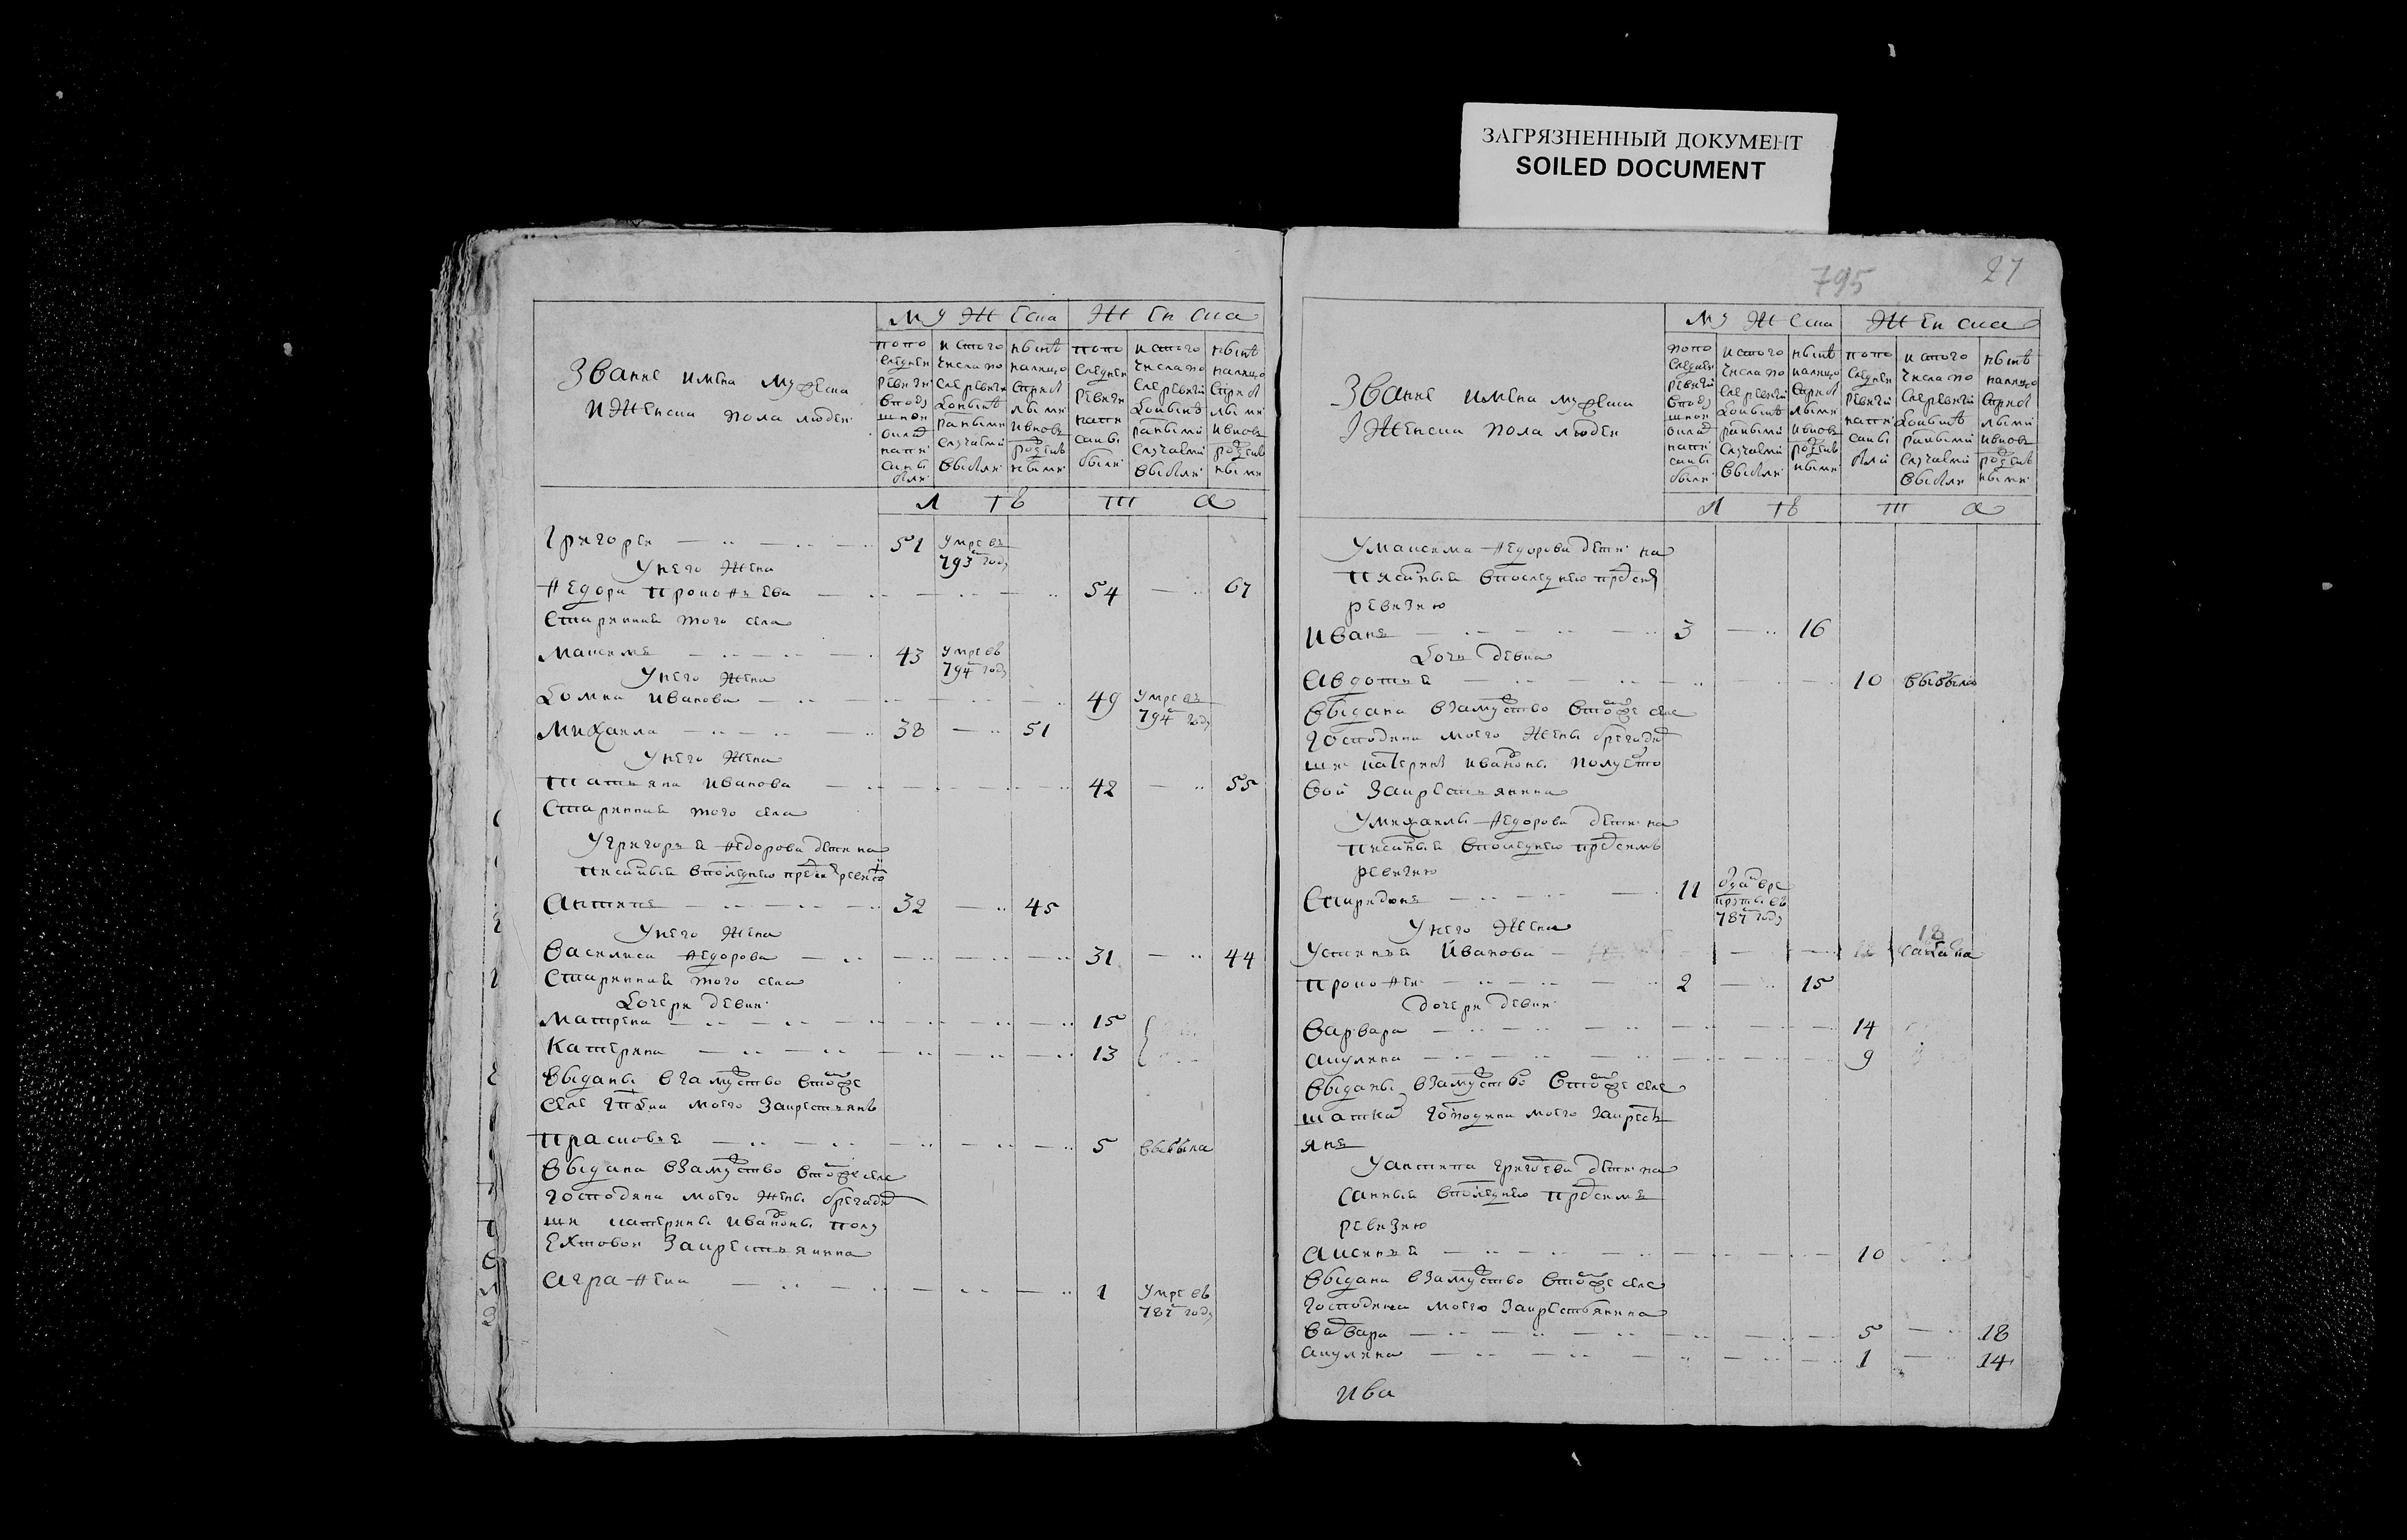 ЗАГРЯЗНЕННЫЙ ДОКУМЕНТ
SOILED DOCUMENT
Мужеска Женска
Звание имена мужеска
и женска пола людей
попо
следней
ревизи
вподу
шной
оклад
напи
саны
были
истого
числа по
сле ревизи
до ныне
разными
случаями
выбыли
ныне
налицо
с прибы
лыми
и вновь
рожден
ными
попо
следней
ревизи
напи
саны
были
истого
числа по
сле ревизи
до ныне
разными
случаями
выбыли
ныне
налицо
с прибы
лыми
и вновь
рожден
ными
лѣ т а
Григорей 51 умре въ
793 году
у него жена
Федора Прокофьева 54 67
старинная того села
Максимъ 43 умре въ
794 году
у него жена
Домна Иванова 49 умре въ
794 году
Михаила 38 51
у него жена
Татьяна Иванова 42 55
старинная того села
у Григорья Федорова дети на
писанныя в последнею пред сею ревизию
Антипъ 32 45
у него жена
Василиса Федорова 31 44
старинная того села
дочери девки
Матрена 15
Катерина 13
выданы в замужство в том же
селе моего за крестьянъ
Прасковья 5 выбыла
выдана в замужство в том же селе
господина моего жены бригадир
ши Катерины Ивановны Полу
ехтовой за крестьянина
Аграфена 1 умре въ
787 году
795 27
Мужеска Женска
Звание имена мужеска
и женска пола людей
попо
следней
ревизи
вподу
шной
оклад
напи
саны
были
истого
числа по
сле ревизи
до ныне
разными
случаями
выбыли
ныне
налицо
с прибы
лыми
и вновь
рожден
ными
попо
следней
ревизи
напи
саны
были
истого
числа по
сле ревизи
до ныне
разными
случаями
выбыли
ныне
налицо
с прибы
лыми
и вновь
рожден
ными
лѣ т а
у Максима Федорова дети на
писанныя в последнею пред сею
ревизию
Иванъ 3 16
дочь девка
Авдотья 10 выбыла
выдана в замужство в том же селе
господина моего жены бригадир
ши Катерины Ивановны Полуехто
вой за крестьянина
у Михаилы Федорова дети на
писанныя в последнею пред семъ
ревизию
Спиридонъ 11 отдан в ре
круты въ
787 году
у него жена
18
Устинья Иванова
Прокофей 2 15
дочери девки
Варвара 14
Акулина 9
выданы в замужство в том же селе
господина моего за кресть
янъ
у Антипа Григорьева дети на
санныя в последнею пред семъ
ревизию
Аксинья 10
выдана в замужство в том же селе
господина моего за крестьянина
Варвара 5 18
Акулина 1 14
Ива